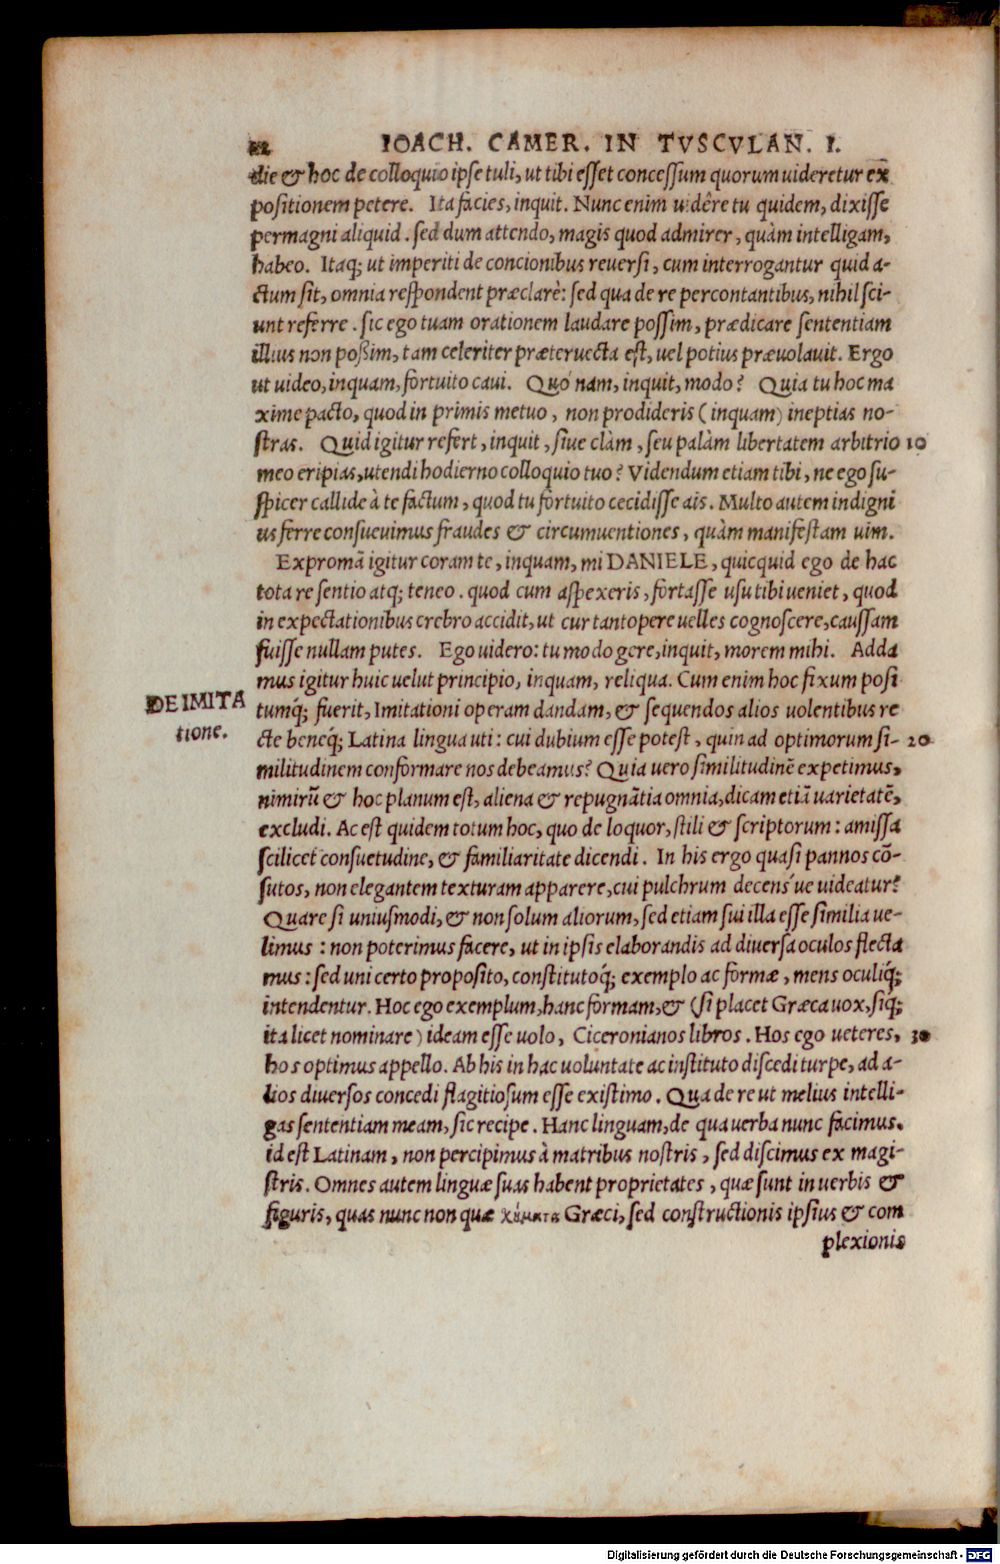 22 IOACH. CAMER. IN TVSCVLAN. I.
die & hoc de colloquio ipse tuli, ut tibi esset concessum quorum uideretur ex
positionem petere. Ita facies, inquit. Nunc enim uidêre tu quidem, dixisse
permagni aliquid. sed dum attendo, magis quod admirer, quàm intelligam,
habeo. Itaq; ut imperiti de concionibus reuersi, cum interrogantur quid a-
ctum sit, omnia respondent præclarè: sed qua de re percontantibus, nihil sci-
unt referre. sic ego tuam orationem laudare possim, prædicare sententiam
illius non poßim, tam celeriter præteruecta est, uel potius præuolauit. Ergo
ut uideo, inquam, fortuito caui. Quo nam, inquit, modo? Quia tu hoc ma
xime pacto, quod in primis metuo, non prodideris (inquam) ineptias no-
stras. Quid igitur refert, inquit, siue clàm, seu palàm libertatem arbitrio 10
meo eripias, utendi hodierno colloquio tuo? Videndum etiam tibi, ne ego su-
spicer callide à te factum, quod tu fortuito cecidisse ais. Multo autem indigni
us ferre consueuimus fraudes & circumuentiones, quàm manifestam uim.
Expromã igitur coram te, inquam, mi DANIELE, quicquid ego de hac
tota re sentio atq; teneo. quod cum aspexeris, fortasse usu tibi ueniet, quod
in expectationibus crebro accidit, ut cur tantopere uelles cognoscere, caussam
fuisse nullam putes. Ego uidero: tu modo gere, inquit, morem mihi. Adda
mus igitur huic uelut principio, inquam, reliqua. Cum enim hoc fixum posi
DE IMITA
tione.
tumq́; fuerit, Imitationi operam dandam, & sequendos alios uolentibus re
cte beneq́; Latina lingua uti: cui dubium esse potest, quin ad optimorum si- 20
militudinem conformare nos debeamus? Quia uero similitudinẽ expetimus,
nimirũ & hoc planum est, aliena & repugnãtia omnia, dicam etiã uarietatẽ,
excludi. Ac est quidem totum hoc, quo de loquor, stili & scriptorum: amissa
scilicet consuetudine, & familiaritate dicendi. In his ergo quasi pannos cõ-
sutos, non elegantem texturam apparere, cui pulchrum decens'ue uideatur?
Quare si uniusmodi, & non solum aliorum, sed etiam sui illa esse similia ue-
limus: non poterimus facere, ut in ipsis elaborandis ad diuersa oculos flecta
mus: sed uni certo proposito, constitutoq́; exemplo ac formæ, mens oculiq́;
intendentur. Hoc ego exemplum, hanc formam, & (si placet Græca uox, siq́;
ita licet nominare) ideam esse uolo, Ciceronianos libros. Hos ego ueteres, 30
hos optimus appello. Ab his in hac uoluntate ac instituto discedi turpe, ad a-
lios diuersos concedi flagitiosum esse existimo. Qua de re ut melius intelli-
gas sententiam meam, sic recipe. Hanc linguam, de qua uerba nunc facimus.
id est Latinam, non percipimus à matribus nostris, sed discimus ex magi-
stris. Omnes autem linguæ suas habent proprietates, quæ sunt in uerbis &
figuris, quas nunc non quæ Græci, sed constructionis ipsius & com
plexionis
Digitalisierung gefördert durch die Deutsche Forschungsgemeinschaft - DFG